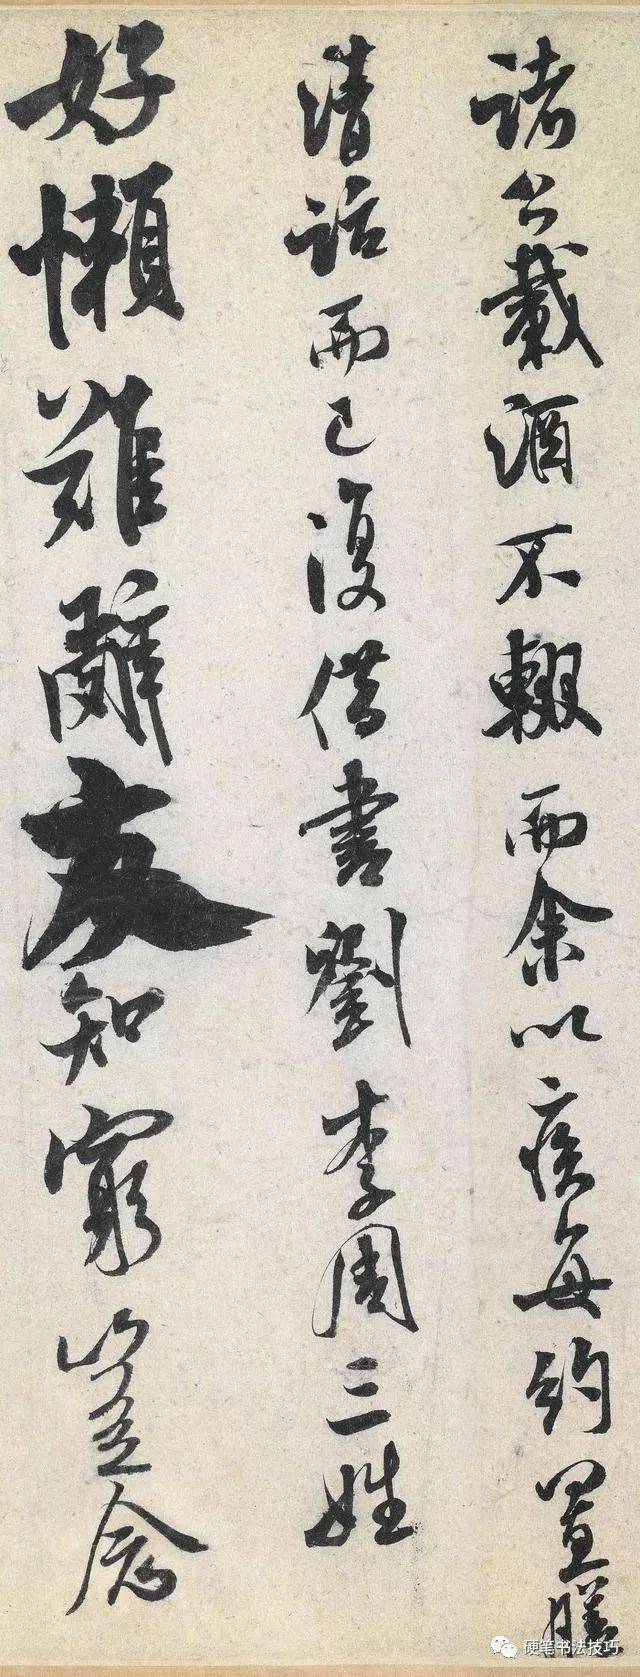 諸公載酒不輟而余以疾每約置膳
清話而已復借書劉李周三姓
好懶難辭友知窮豈念
硬笔书法技巧